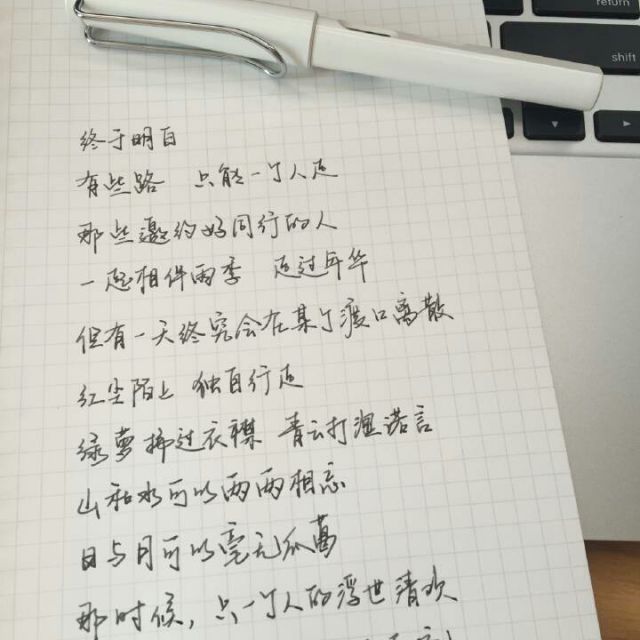 return
shift
终于明白
有些路 只能一个人走
那些邀约好同行的人
一起相伴雨季 走过年华
但有一天终究会在某个渡口离散
红尘陌上 独自行走
绿萝拂过衣襟 青云打湿诺言
山和水可以两两相忘
日与月可以毫无瓜葛
那时候，只一个人的浮世清欢